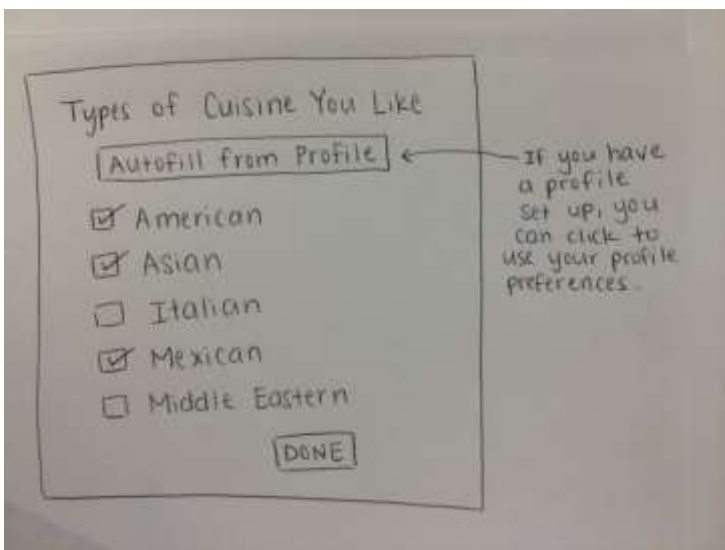 Types of Cuisine You Like
Autofill from Profile
American
Asian
Italian
Mexican
Middle Eastern
DONE
If you have
a profile
set up, you
can click to
use your profile
preferences.